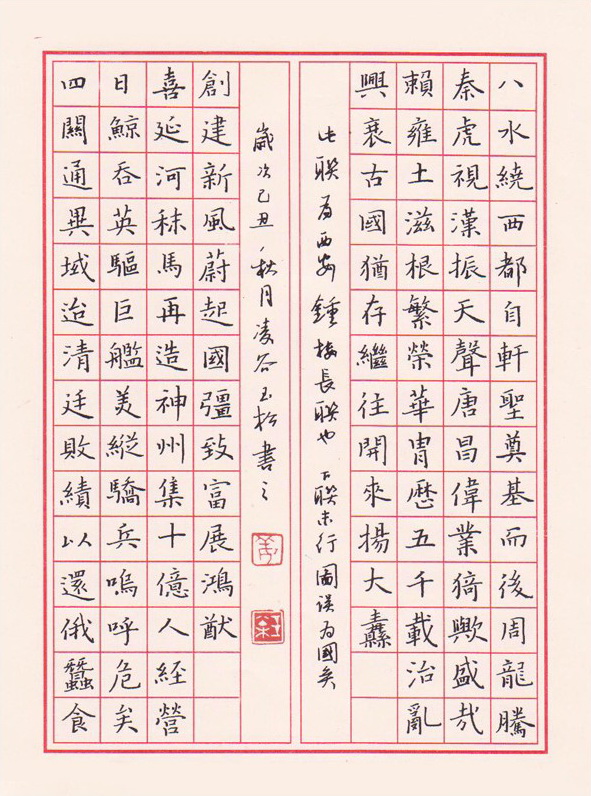 八水繞西都自軒聖奠基而後周龍騰
秦虎視漢振天聲唐昌偉業猗歟盛哉
賴雍土滋根繁榮華冑歷五千載治亂
興衰古國猶存繼往開來揚大纛
此聯為西安鍾樓長聯也 下聯末行圖誤為國矣
四關通異域迨清廷敗績以還俄蠶食
日鯨吞英驅巨艦美縱驕兵嗚呼危矣
喜延河秣馬再造神州集十億人経營
創建新風蔚起國彊致富展鴻猷
歲次己丑秋月凌谷玉松書之